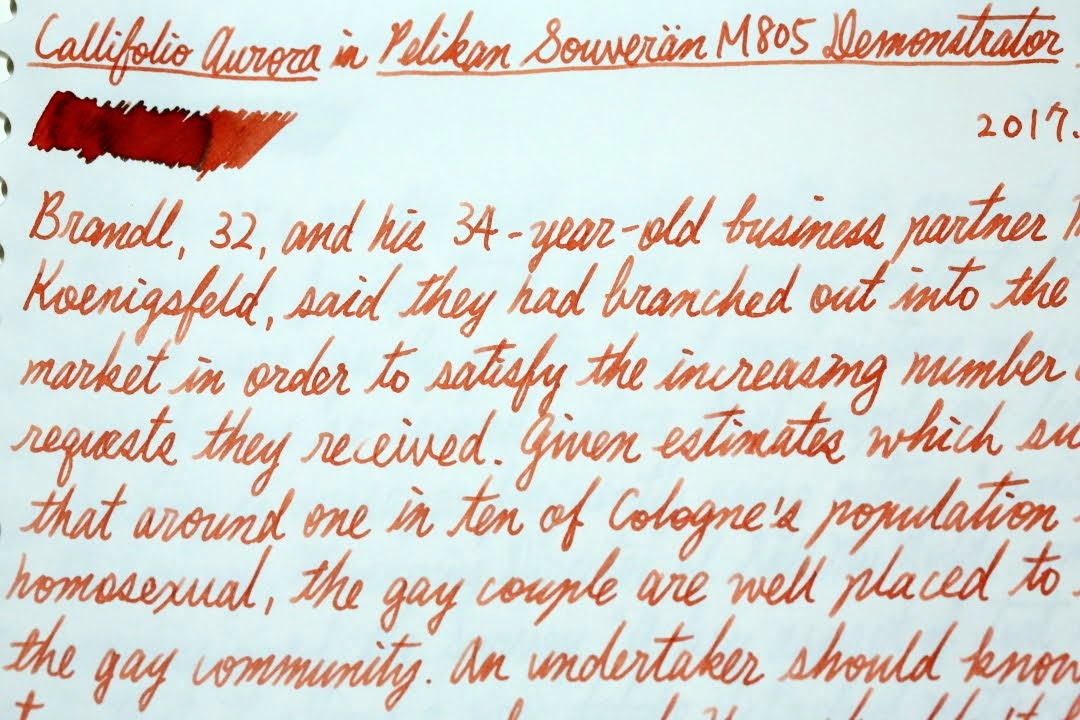 Callifolio Aurora in Pelikan Souverän M805 Demonstrator
2017.
Brandl, 32, and his 34-year-old business partner
Koenigsfeld, said they had branched out into the
market in order to satisfy the increasing number
requests they received. Given estimates which su
that around one in ten of Cologne's population
homosexual, the gay couple are well placed to
the gay community. An undertaker should know